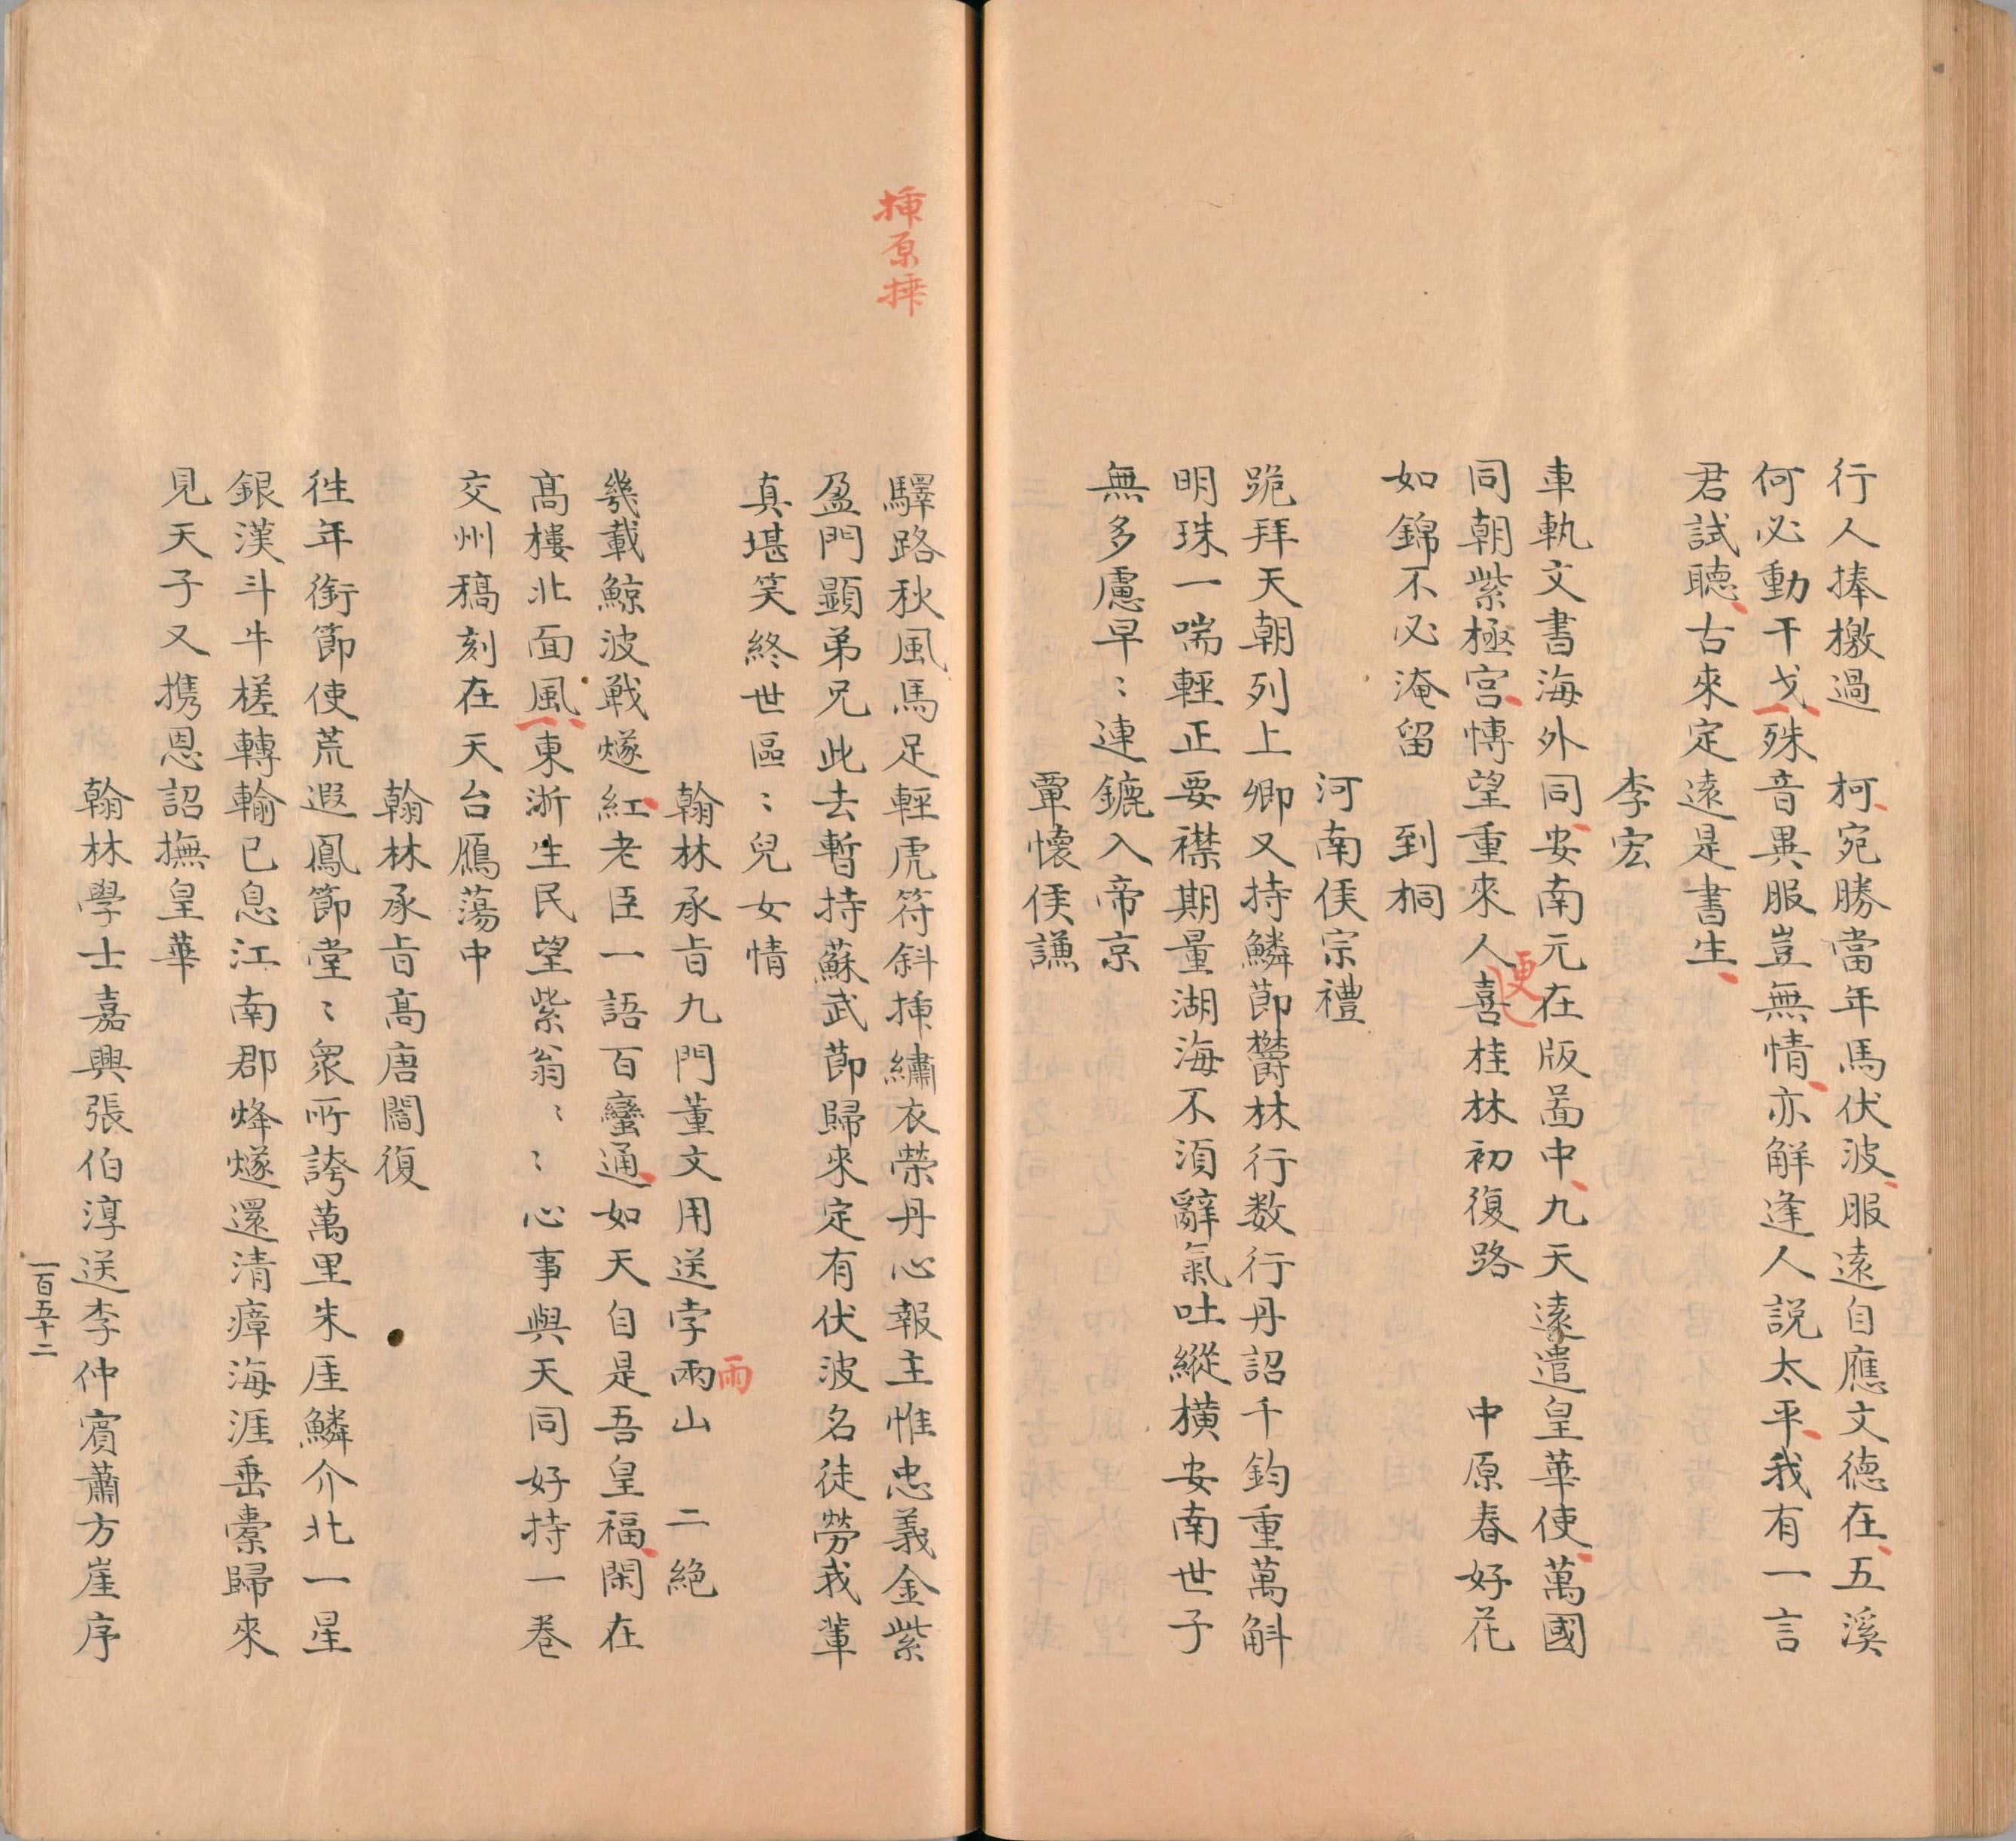 行人捧檄過　柯宛勝當年馬伏波服遠自應文德在五溪
何必動干戈殊音異服豈無情亦解逢人説太平我有一言
君試聴古來定遠是書生
李宏
車軌文書海外同安南元在版啚中九天遠遣皇華使萬國
同朝紫極宫慱望重來人喜桂林初復路　中原春好花
更
如錦不必淹留　到桐
河南侯宗禮
跪拜天朝列上卿又持鱗節欝林行数行丹詔千鈞重萬斛
明珠一喘輕正要襟期量湖海不湏辭氣吐縱横安南世子
無多慮早〻連鑣入帝京
覃懷侯謙
揷原捶
驛路秋風馬足輕虎符斜揷繡衣榮丹心報主惟忠義金紫
盈門顯弟兄此去暫持蘇武節歸來定有伏波名徒勞我輩
真堪笑終世區〻兒女情
翰林承旨九門董文用送李雨山　二絶
雨
幾載鯨波戰燧紅老臣一語百蠻通如天自是吾皇福閑在
髙樓北面風東浙生民望紫翁〻〻心事與天同好持一卷
交州稿刻在天台鴈蕩中
翰林承旨髙唐閻復
徃年銜節使荒遐鳳節堂〻衆所誇萬里朱厓鱗介北一星
銀漢斗牛槎轉輸已息江南郡烽燧還清瘴海涯垂橐歸來
見天子又携恩詔撫皇華
翰林學士嘉興張伯淳送李仲賓蕭方崖序
一百五十二